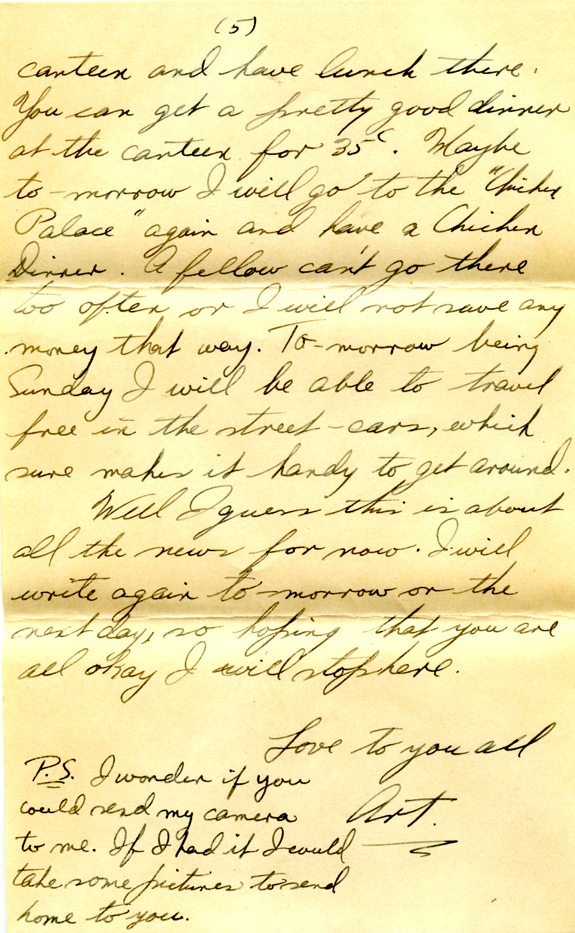 (5)
canteen and have lunch there.
You can get a pretty good dinner
at the canteen for 35¢. Maybe
to-morrow I will go to the "Chicken
Palace" again and have a Chicken
Dinner. A fellow can't go there
too often or I will not save any
money that way. To-morrow being
Sunday I will be able to travel
free in the street-cars, which
sure makes it handy to get around.
Well I guess this is about
all the news for now. I will
write again to-morrow or the
next day, so hoping that you are
all okay I will stop here.
Love to you all
Art.
P.S. I wonder if you
could send my camera
to me. If I had it I would
take some pictures to send
home to you.